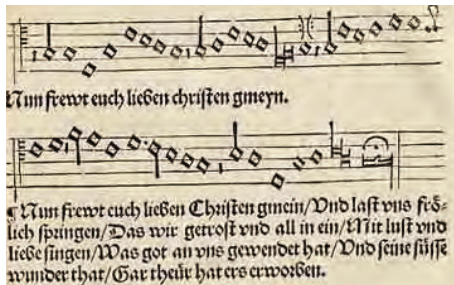 Nun frewt euch lieben christen gmeyn.
¶ Nun frewt euch lieben Christen gmein/Vnd last vns frö-
lich springen/Das wir getrost vnd all in ein/Mit lust vnd
liebe singen/Was got an vns gewendet hat/Vnd seine süsse
wunder that/Gar theür hat ers erworben.